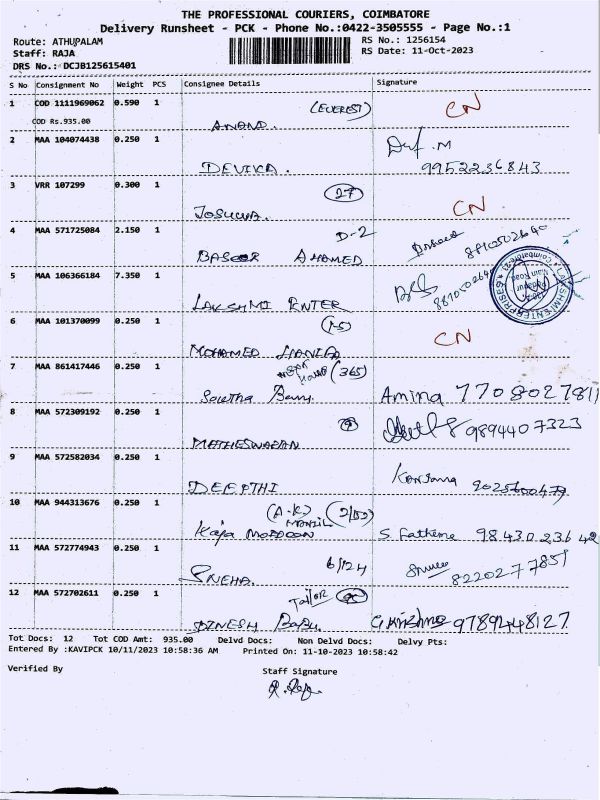 THE PROFESSIONAL COURIERS, COIMBATORE
Delivery Runsheet - PCK - Phone No.:0422-3505555 - Page No.:1
Route: ATHUPALAM
RS No.: 1256154
Staff: RAJA
RS Date: 11-Oct-2023
DRS No.: DCJB125615401
S No Consignment No Weight PCS Consignee Details Signature
1 COD 1111969062 0.590 1 (EVEREST) CN
COD Rs.935.00 ANAND.
2 MAA 104074438 0.250 1
DEVIKA. 9952236843
3 VRR 107299 0.300 1 (27) CN
4 MAA 571725084 2.150 1 D-2
BASEER AHAMED
5 MAA 106366184 7.350 1
LAKSHMI ENTER
6 MAA 101370099 0.250 1 CN
MOHAMED HANIFA
7 MAA 861417446 0.250 1 (365)
Amina 7708027811
8 MAA 572309192 0.250 1 9894407323
MATHESWARAN
9 MAA 572582034 0.250 1
DEEPTHI
10 MAA 944313676 0.250 1 (A.K) MANZIL
Kaja S. Fathima
11 MAA 572774943 0.250 1 6/124
SNEHA. 8220277851
12 MAA 572702611 0.250 1 Tailor
DINESH BABU. 9789448127
Tot Docs: 12 Tot COD Amt: 935.00 Delvd Docs: Non Delvd Docs: Delvy Pts:
Entered By :KAVIPCK 10/11/2023 10:58:36 AM Printed On: 11-10-2023 10:58:42
Verified By Staff Signature